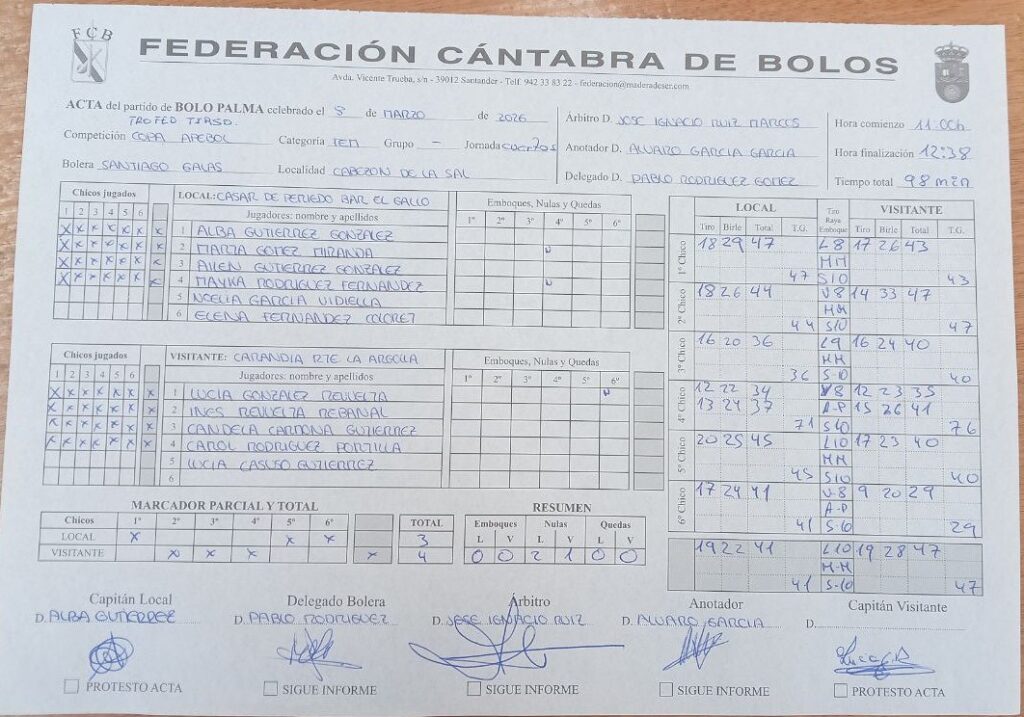 FCB
FEDERACIÓN CÁNTABRA DE BOLOS
Avda. Vicente Trueba, s/n - 39012 Santander - Telf. 942 33 83 22 - federacion@maderadeser.com
ACTA del partido de BOLO PALMA celebrado el 8 de MARZO de 2026
TROFEO TIRSO.
Competición COPA APEBOL Categoría FEM Grupo - Jornada cuartos
Bolera SANTIAGO GALAS Localidad CABEZON DE LA SAL
Árbitro D. JOSE IGNACIO RUIZ MARCOS
Anotador D. ALVARO GARCIA GARCIA
Delegado D. PABLO RODRIGUEZ GOMEZ
Hora comienzo 11:00h
Hora finalización 12:38
Tiempo total 98 min
Chicos jugados
1 2 3 4 5 6
x x x x x x x
x x x x x x x
x x x x x x x
x x x x x x x
LOCAL: CASAR DE PERIEDO BAR EL GALLO
Jugadores: nombre y apellidos
1 ALBA GUTIERREZ GONZALEZ
2 MARTA GOMEZ MIRANDA
3 AILEN GUTIERREZ GONZALEZ
4 MAYKA RODRIGUEZ FERNANDEZ
5 NOELIA GARCIA VIDIELLA
6 ELENA FERNANDEZ COLORET
Emboques, Nulas y Quedas
1º 2º 3º 4º 5º 6º
Chicos jugados
1 2 3 4 5 6
x x x x x x x
x x x x x x x
x x x x x x x
x x x x x x x
VISITANTE: CARANDIA RTE LA ARGOLLA
Jugadores: nombre y apellidos
1 LUCIA GONZALEZ REVUELTA
2 INES REVUELTA REBANAL
3 CANDELA CARDONA GUTIERREZ
4 CAROL RODRIGUEZ PORTILLA
5 LUCIA CASUSO GUTIERREZ
6
Emboques, Nulas y Quedas
1º 2º 3º 4º 5º 6º
LOCAL Tiro Raya Emboque VISITANTE
Tiro Birle Total T.G. Tiro Birle Total T.G.
1º Chico 18 29 47 L8 17 26 43
MM
47 S10 43
2º Chico 18 26 44 V8 14 33 47
MM
44 S10 47
3º Chico 16 20 36 L9 16 24 40
MM
36 S-10 40
4º Chico 12 22 34 V8 12 23 35
13 24 37 A-P 15 26 41
71 S10 76
5º Chico 20 25 45 L10 17 23 40
MM
45 S10 40
6º Chico 17 24 41 V-8 9 20 29
A-P
41 S-10 29
19 22 41 L10 19 28 47
M-M
41 S-10 47
MARCADOR PARCIAL Y TOTAL
Chicos 1º 2º 3º 4º 5º 6º TOTAL
LOCAL x x x 3
VISITANTE x x x x 4
RESUMEN
Emboques Nulas Quedas
L V L V L V
0 0 2 1 0 0
Capitán Local Delegado Bolera Árbitro Anotador Capitán Visitante
D. ALBA GUTIERREZ D. PABLO RODRIGUEZ D. JOSE IGNACIO RUIZ D. ALVARO GARCIA D.
PROTESTO ACTA SIGUE INFORME SIGUE INFORME SIGUE INFORME PROTESTO ACTA